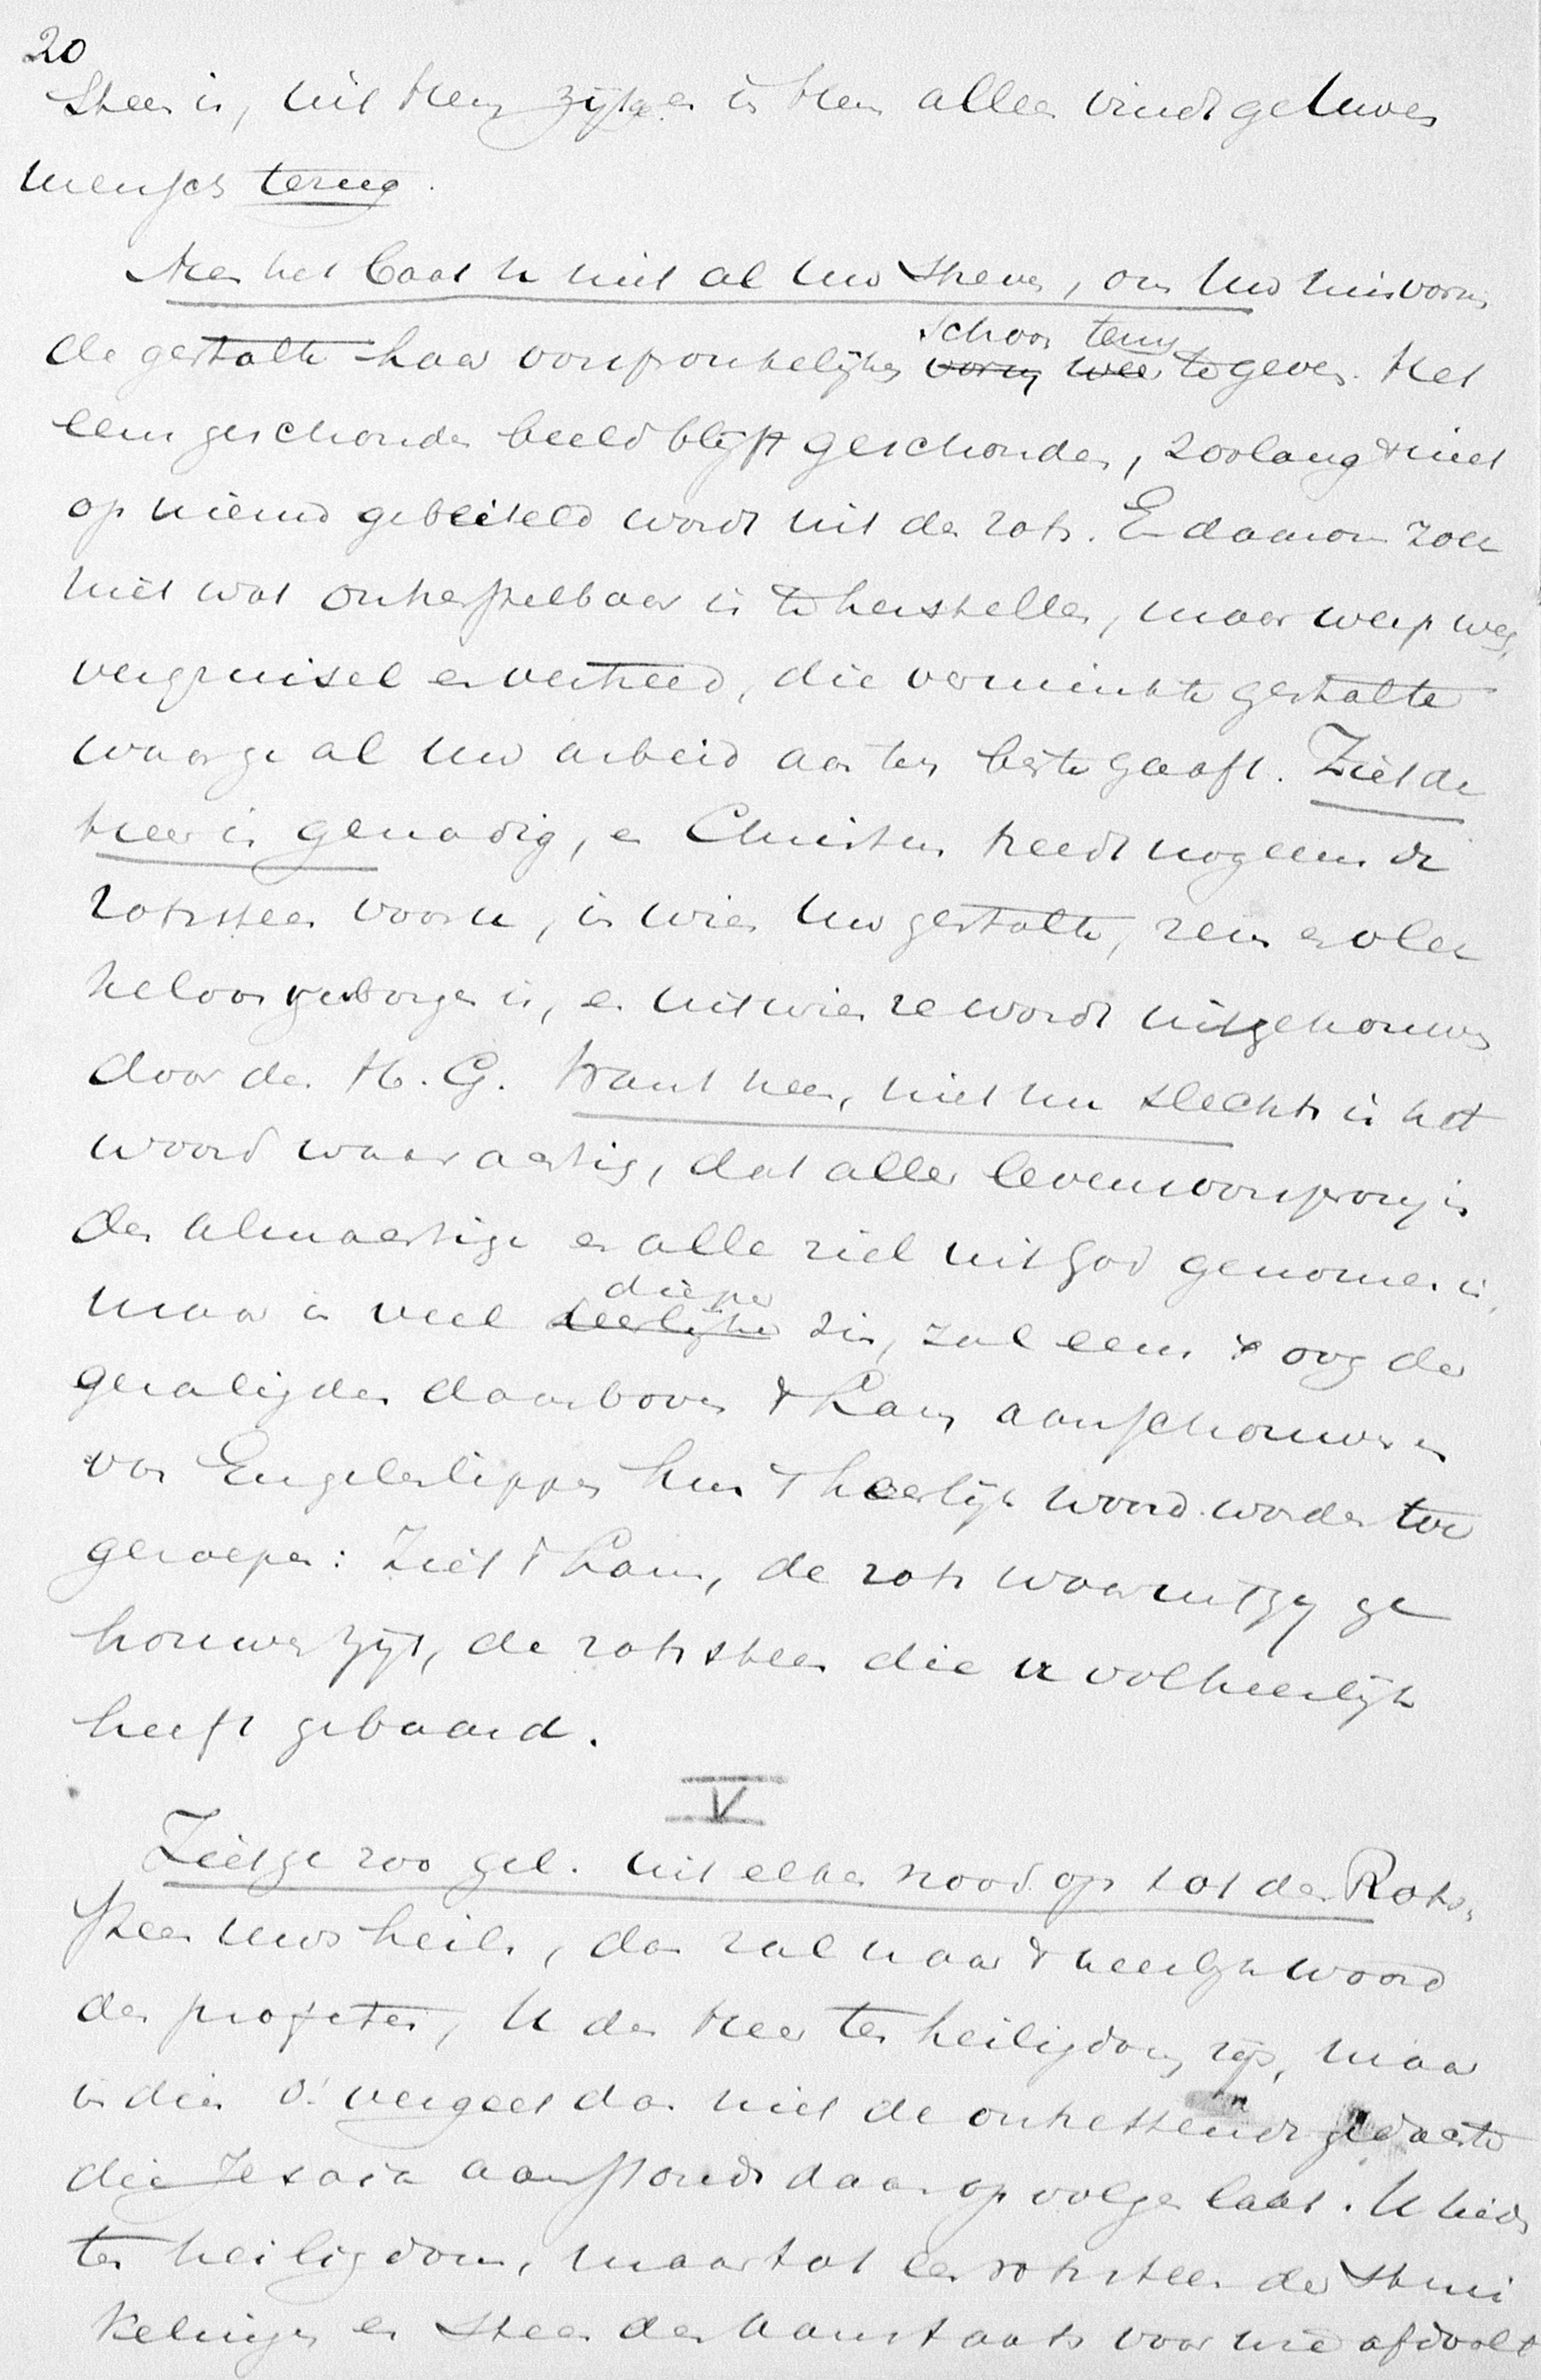 20
Steen is, uit Hem zijt ge en in Hem alleen vindt ge Uwen
mensch terug.
Neen het baat U niet al Uw streven, om Uw misvorm
de gestalte haar oorspronkelijken schoon terug te geven. Het
eens geschonden beeld blijft geschonden, zoolang 't niet
op nieuw gebeiteld wordt uit de rots. En daarom zoek
niet wat onherstelbaar is te herstellen, maar werp weg,
vergruisel en vertreed, die verminkte gestalte
waar ge al Uw arbeid aan ten beste gaaft. Ziet de
Heer is genadig, en Christus treedt nog eens als
rotssteen voor u, in wien Uw gestalte, rein en vlek
keloos verborgen is, en uit wien ze wordt uitgehouwen
door den H. G. Want neen, niet nu slechts is het
woord waarachtig, dat aller levensoorsprong in
den Almachtige en alle ziel uit God genomen is,
maar in veel dieper zin, zal eens 't oog der
gezaligden daarboven 't Lam aanschouwen en
van Engelenlippen hun 't heerlijk woord worden toe
geroepen: Ziet 't Lam, de rots waaruit gij ge
houwen zijt, de rotssteen die u volheerlijk
heeft gebaard.
V
Ziet ge zoo gel. uit elken nood op tot den Rots,
steen Uws heils, dan zal naar 't heerlijk woord
des profeten, U de Heer ten heiligdom zijn, maar
indien o! vergeet dan niet de ontzettende gedachte
die Jesaia aanstonds daarop volgen laat. U lieden
ten heiligdom, maar tot een rotssteen der strui
kelingen en steen des aanstoots voor wie afdoolt